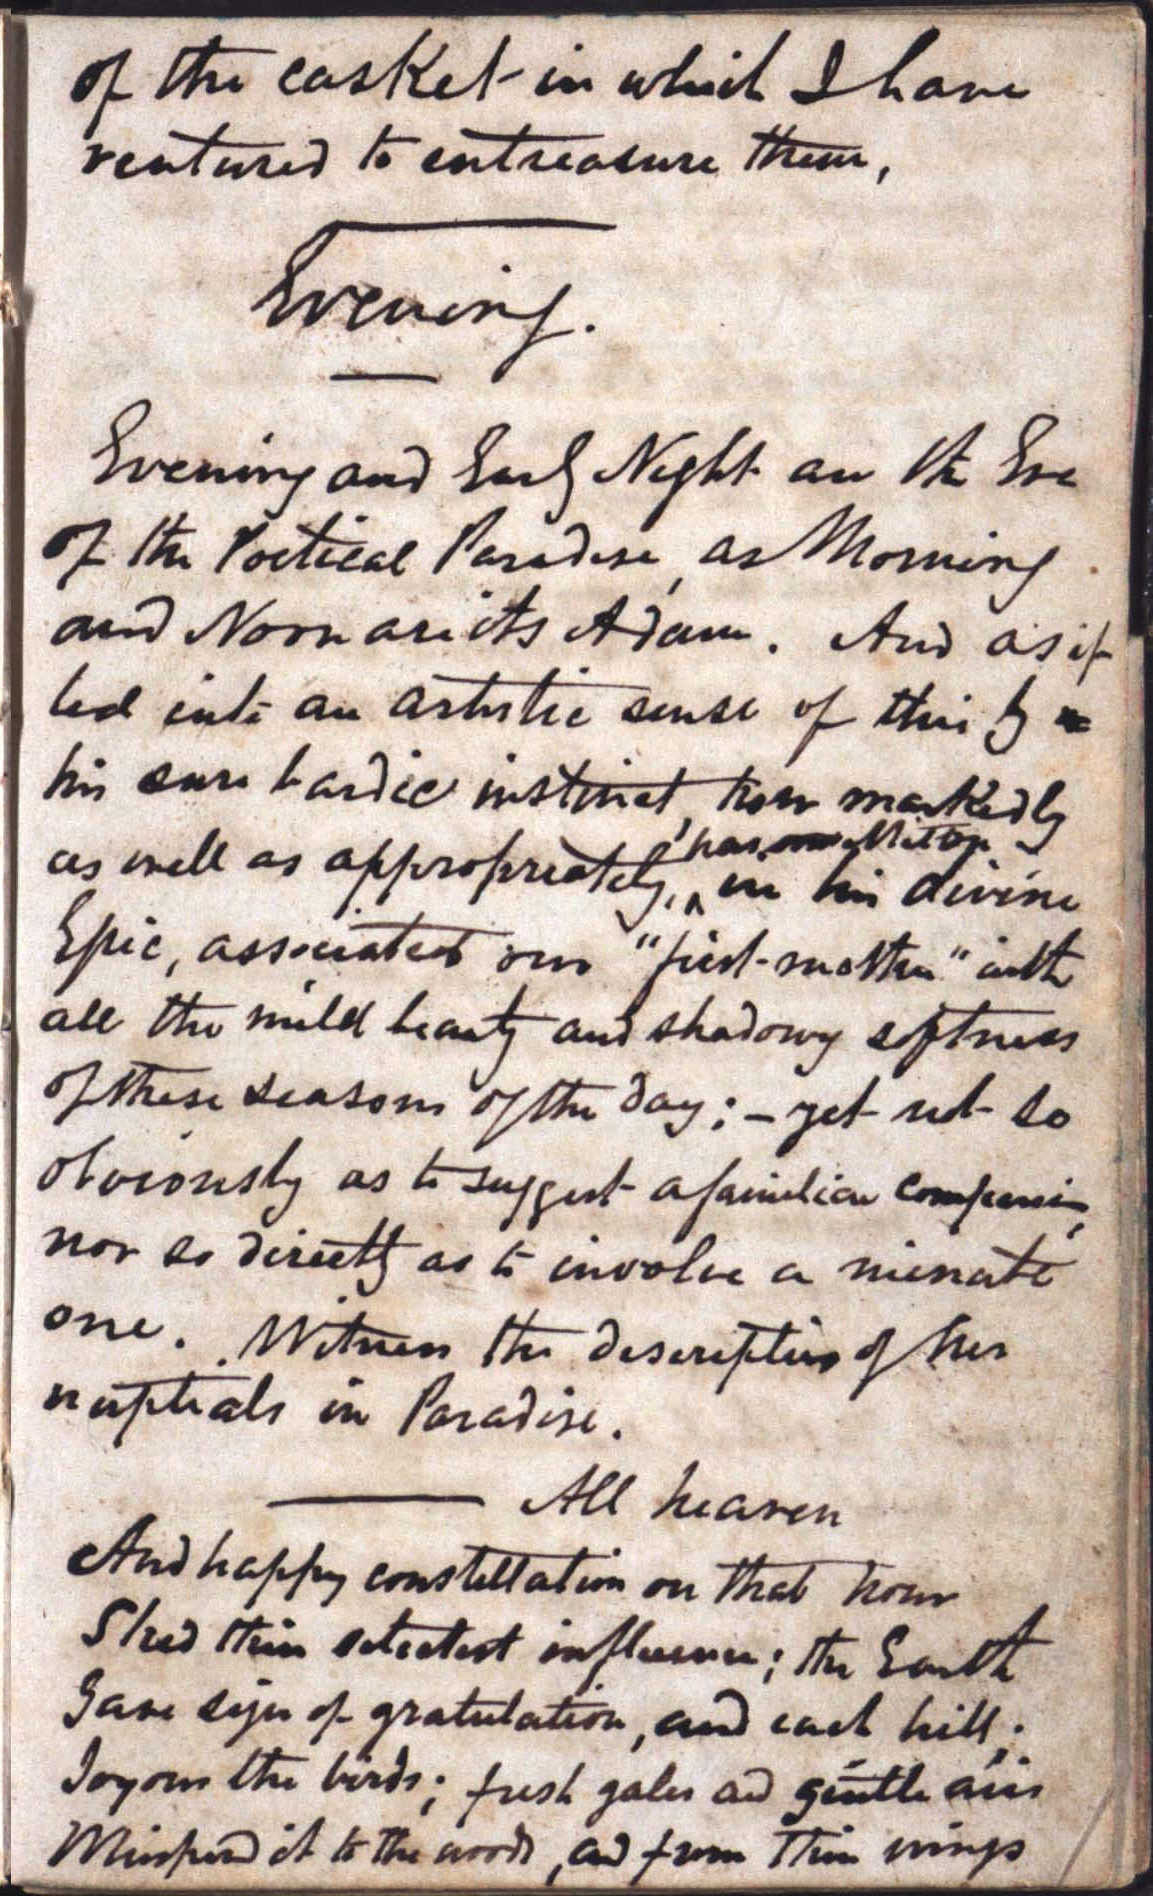 of the casket in which I have
ventured to entreasure them,
Evening.
Evening and Early Night are the Eve
of the Poetical Paradise, as Morning
and Noon are its Adam. And as if
led into an artistic sense of this by
his sure bardic instinct, how markedly
has Milton
as well as appropriately, ^ in his divine
Epic, associated our "first-mother" with
all the mild beauty and shadowy softness
of these seasons of the day; – yet not so
obviously as to suggest a familiar comparison,
nor so directly as to involve a minute
one. Witness the description of her
nuptials in Paradise.
—— All heaven
And happy constellation on that hour
Shed their selectest influence; the Earth
Gave sign of gratulation, and each hill;
Joyous the birds; fresh gales and gentle airs
Whisper'd it to the woods, and from their wings